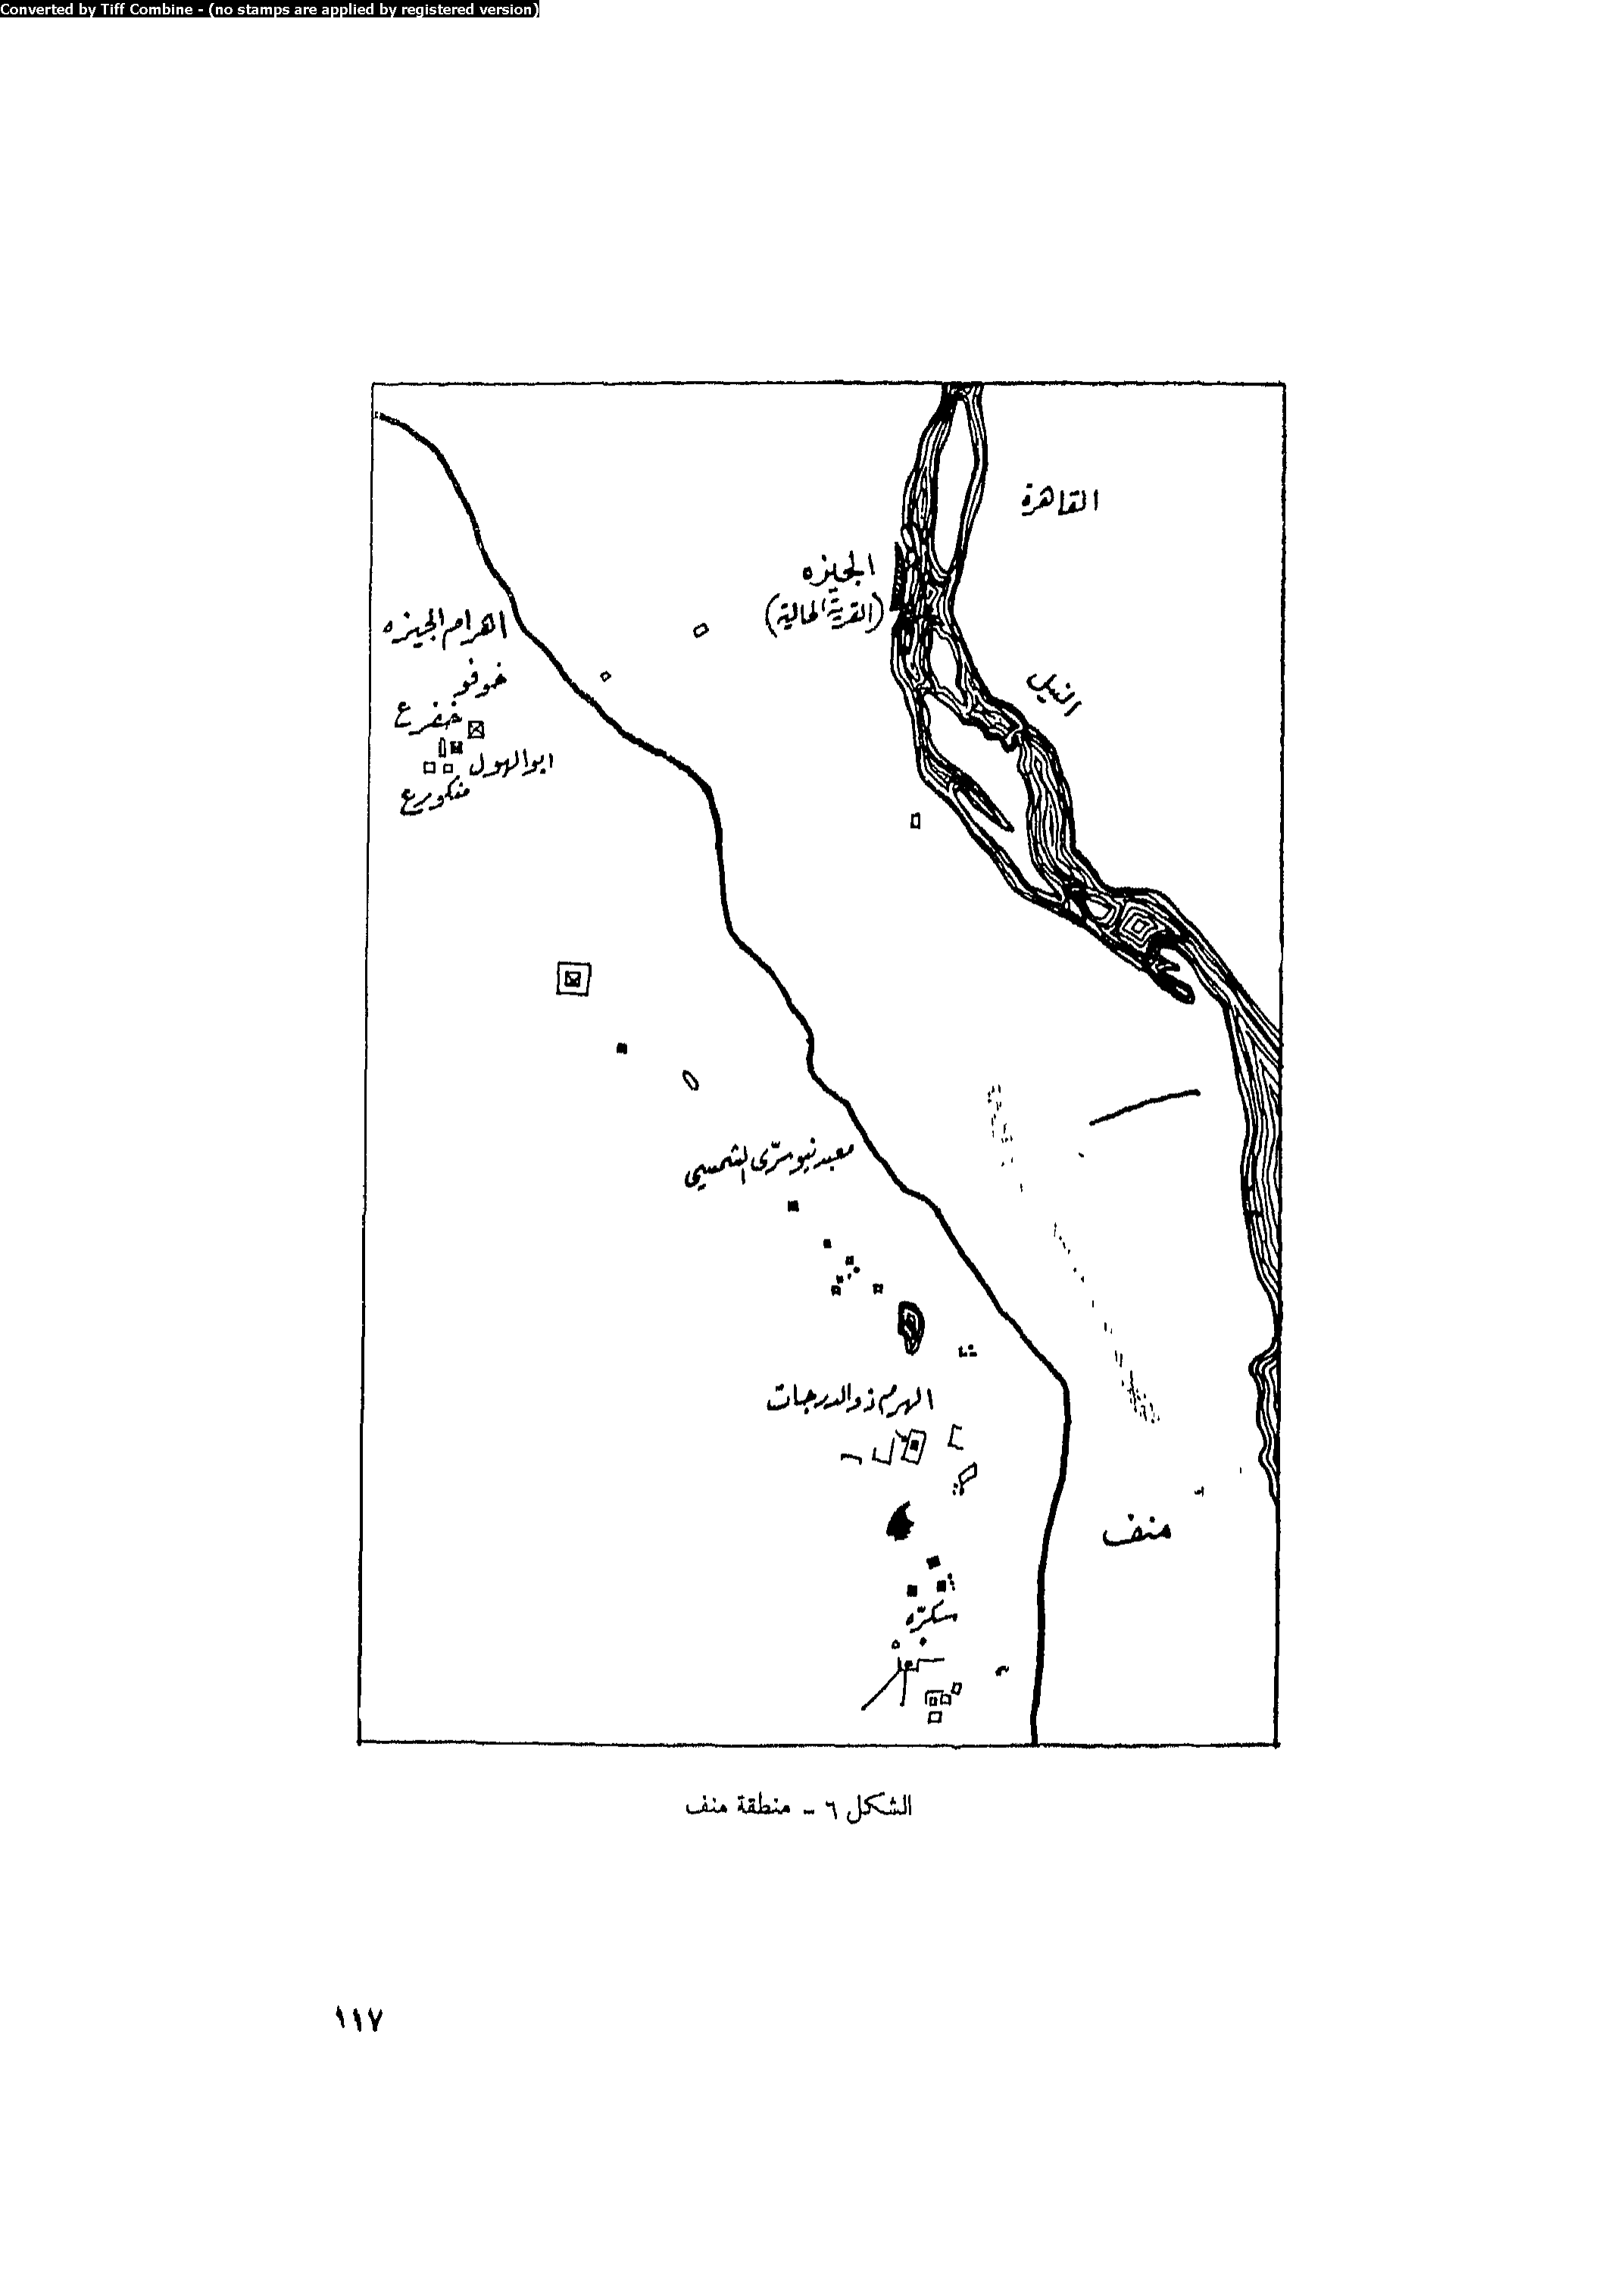 Converted by Tiff Combine - (no stamps are applied by registered version)
القاهرة
الجيزه
(القرية الحالية)
اهرام الجيزه
النيل
خوفو
خفرع
ابو الهول
منكورع
معبد نيوسرّى الشمسي
الهرم ذو الدرجات
منف
سكرّه
الشكل ٦ - منطقة منف
١١٧